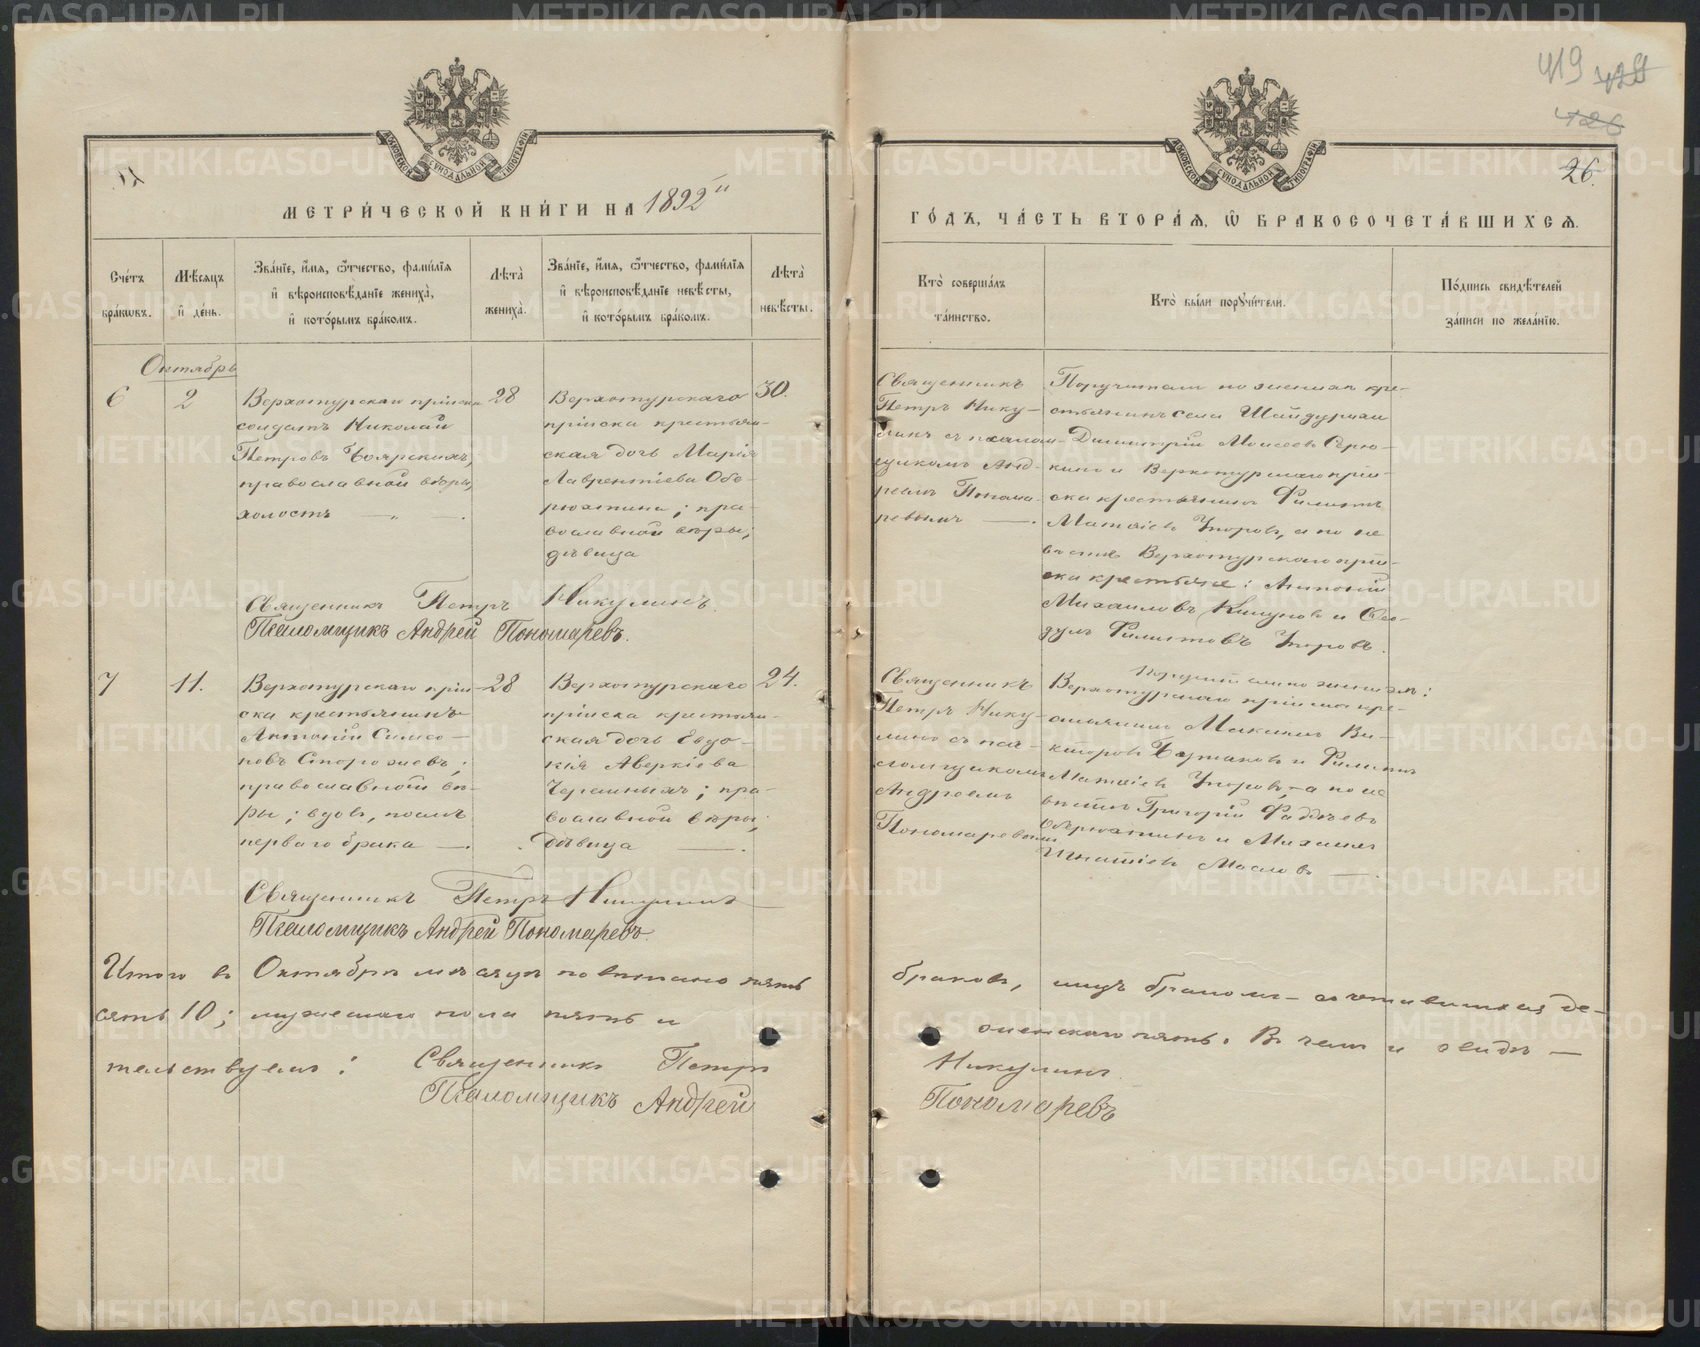 419 428
426
26.
МЕТРИ́ЧЕСКОЙ КНИ́ГИ НА 1892й
ГО́ДЪ, ЧА́СТЬ ВТОРА́Я, Ѿ БРАКОСОЧЕТА́ВШИХСЯ.
Сче́тъ бра́кѡвъ.
Мѣ́сяцъ и́ де́нь.
Зва́нїе, и́мя, ѻ́тчество, фами́лїя и́ вѣроисповѣ́данїе жениха̀, и́ кото́рымъ бра́комъ.
Лѣта̀ жениха̀.
Зва́нїе, и́мя, ѻ́тчество, фами́лїя и́ вѣроисповѣ́данїе невѣ́сты, и́ кото́рымъ бра́комъ.
Лѣта̀ невѣ́сты.
Кто̀ соверша́лъ та́инство.
Кто̀ бы́ли поручи́тели.
По́дпись свидѣ́телей за́писи по жела́нїю.
Октябрь
6
2
Верхотурскаго пріиска
солдатъ Николай
Петровъ Боярскихъ,
православной вѣры,
холостъ
28
Верхотурскаго
пріиска крестьян-
ская дочь Марія
Лаврентіева Обо-
рюхтина; пра-
вославной вѣры;
дѣвица
30.
Священникъ
Петръ Нику-
линъ съ псалом-
щикомъ Анд-
реемъ Понома-
ревымъ
Поручители по женихѣ кре-
стьянинъ села Шайдурихи
Димитрій Моисеевъ
и Верхотурскаго прі-
иска крестьянинъ Филиппъ
Матвіевъ Упоровъ, а по не
вѣстѣ Верхотурскаго прі-
иска крестьяне: Антоній
Михаиловъ Кикуновъ и Ѳео-
дулъ Филипповъ Упоровъ.
Священникъ Петръ Никулинъ.
Псаломщикъ Андрей Пономаревъ.
7
11.
Верхотурскаго прі-
иска крестьянинъ
Антоній Симео-
новъ Сторожевъ;
православной вѣ-
ры; вдовъ, послѣ
перваго брака
28
Верхотурскаго
пріиска крестьян-
ская дочь Евдо-
кія Аверкіева
Черемныхъ; пра-
вославной вѣры;
дѣвица
24.
Священникъ
Петръ Нику-
линъ съ пса-
ломщикомъ
Андреемъ
Пономаревымъ
Поручители по женихѣ:
Верхотурскаго пріиска кре-
стьянинъ Ви-
кторовъ и Филиппъ
Матвіевъ Упоровъ, а по не
вѣстѣ Григорій Фаддѣевъ
и Михаилъ
Игнатіевъ Масловъ
Священникъ Петръ Никулинъ
Псаломщикъ Андрей Пономаревъ.
Итого въ Октябрѣ мѣсяцѣ повѣнчано пять браковъ, лицъ бракомъ сочетавшихся де-
сять 10; мужескаго пола пять и женскаго пять. Въ чемъ и свидѣ-
тельствуемъ: Священникъ Петръ Никулинъ
Псаломщикъ Андрей Пономаревъ